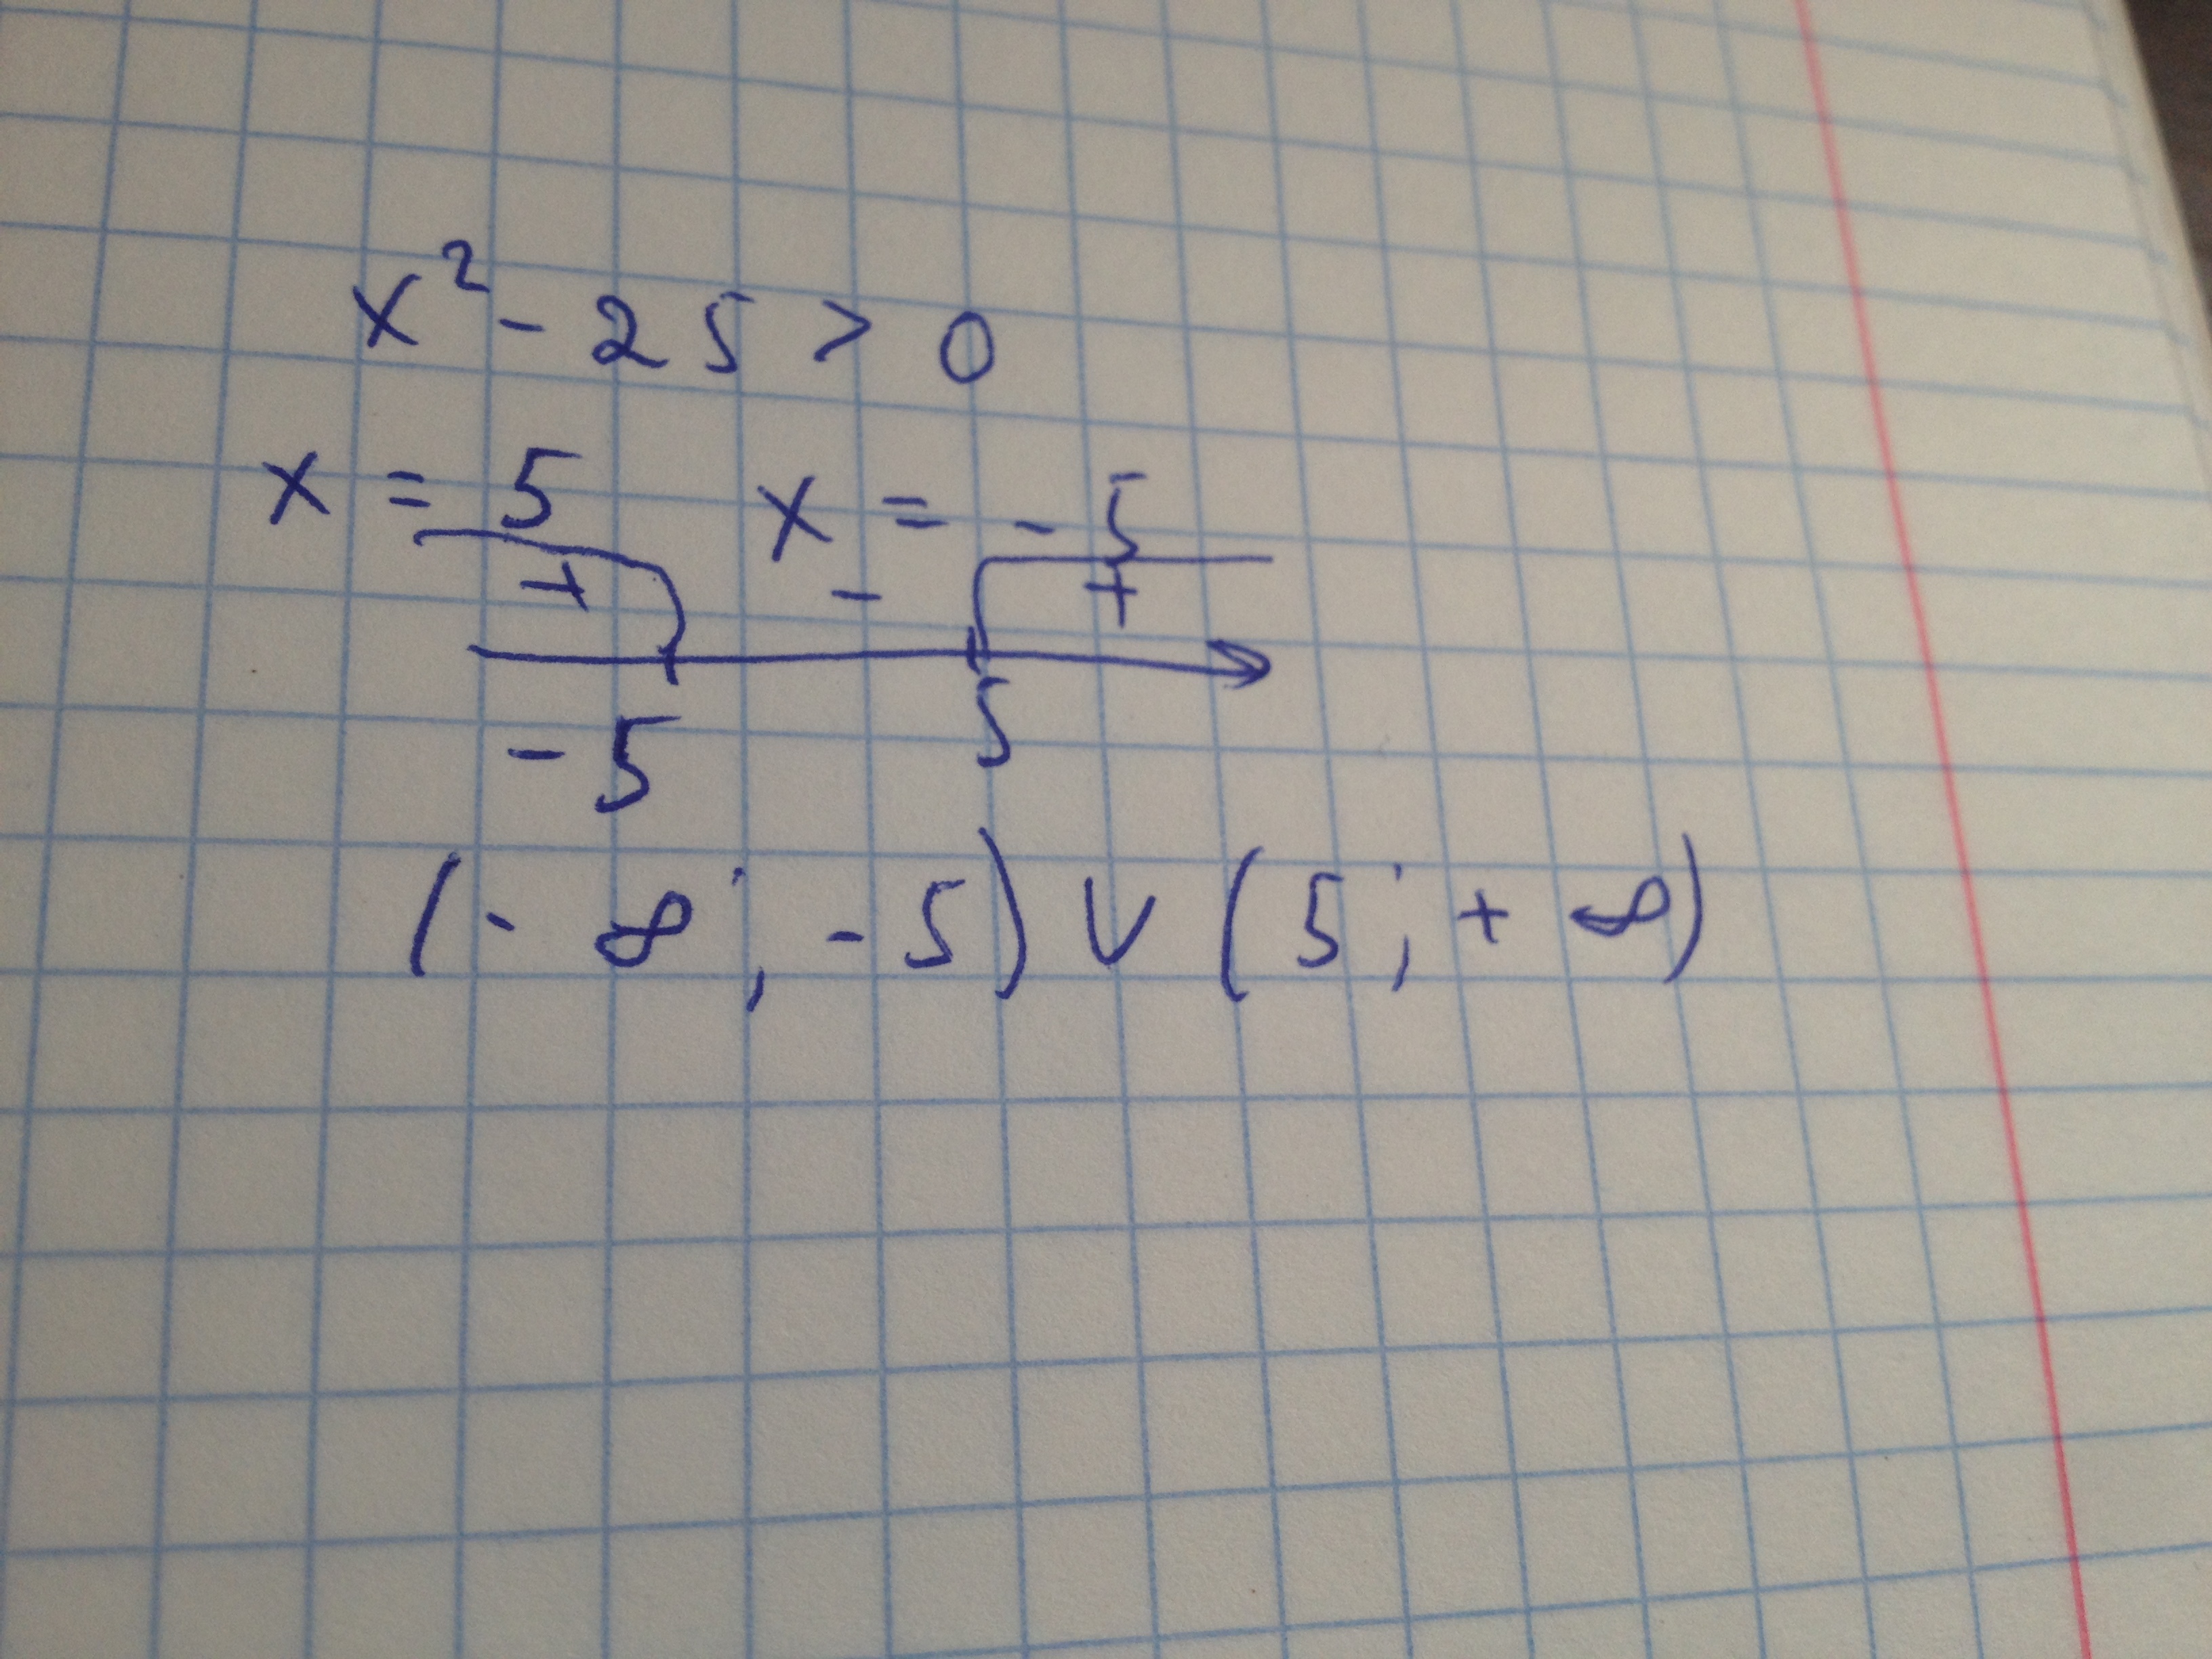 x² - 25 > 0
x = 5   x = - 5
+   -   +
- 5   5
(- ∞ ; - 5) ∪ (5 ; + ∞)